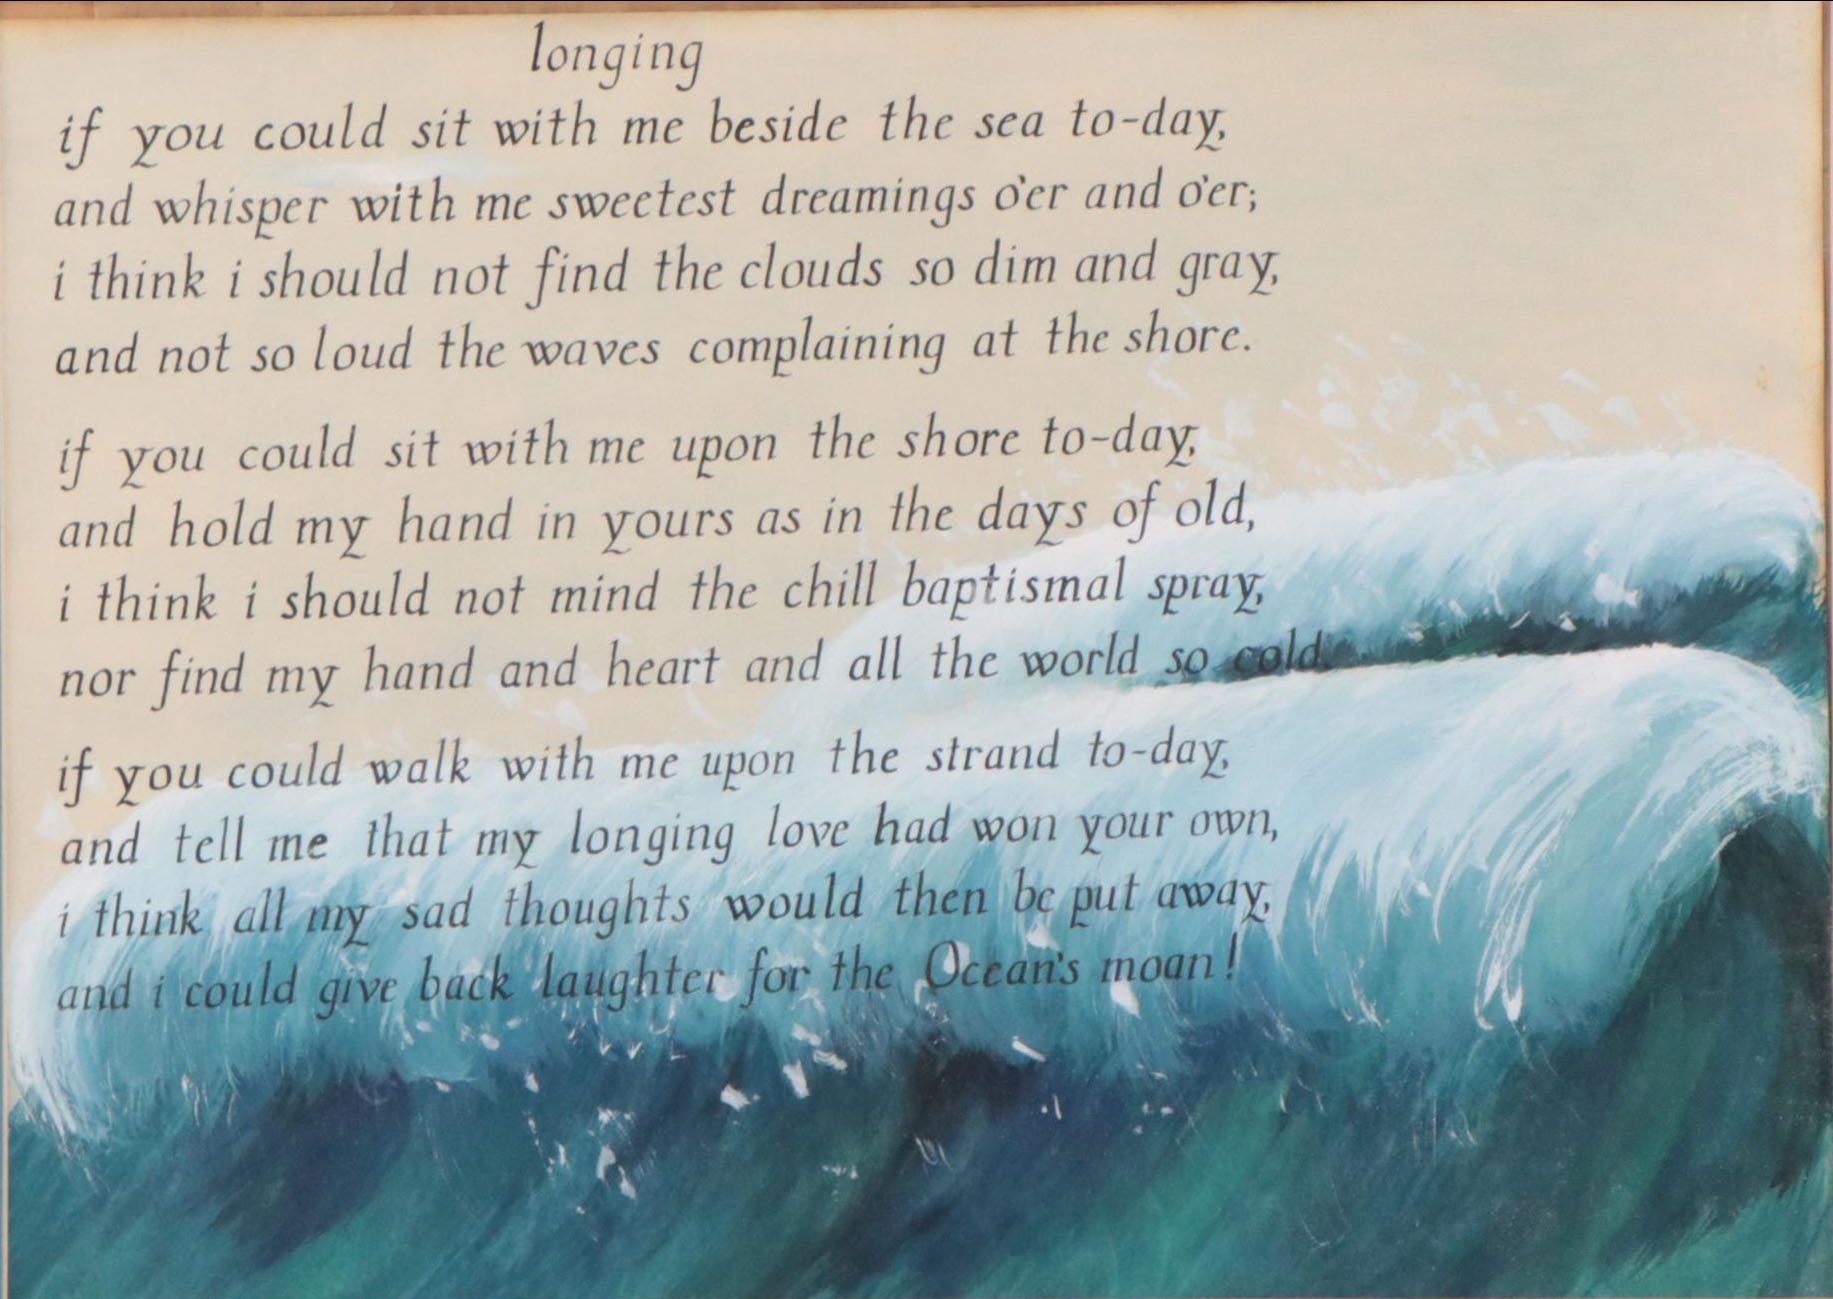 longing
if you could sit with me beside the sea to-day,
and whisper with me sweetest dreamings o'er and o'er;
i think i should not find the clouds so dim and gray,
and not so loud the waves complaining at the shore.
if you could sit with me upon the shore to-day,
and hold my hand in yours as in the days of old,
i think i should not mind the chill baptismal spray,
nor find my hand and heart and all the world so cold.
if you could walk with me upon the strand to-day,
and tell me that my longing love had won your own,
i think all my sad thoughts would then be put away,
and i could give back laughter for the Ocean's moan!